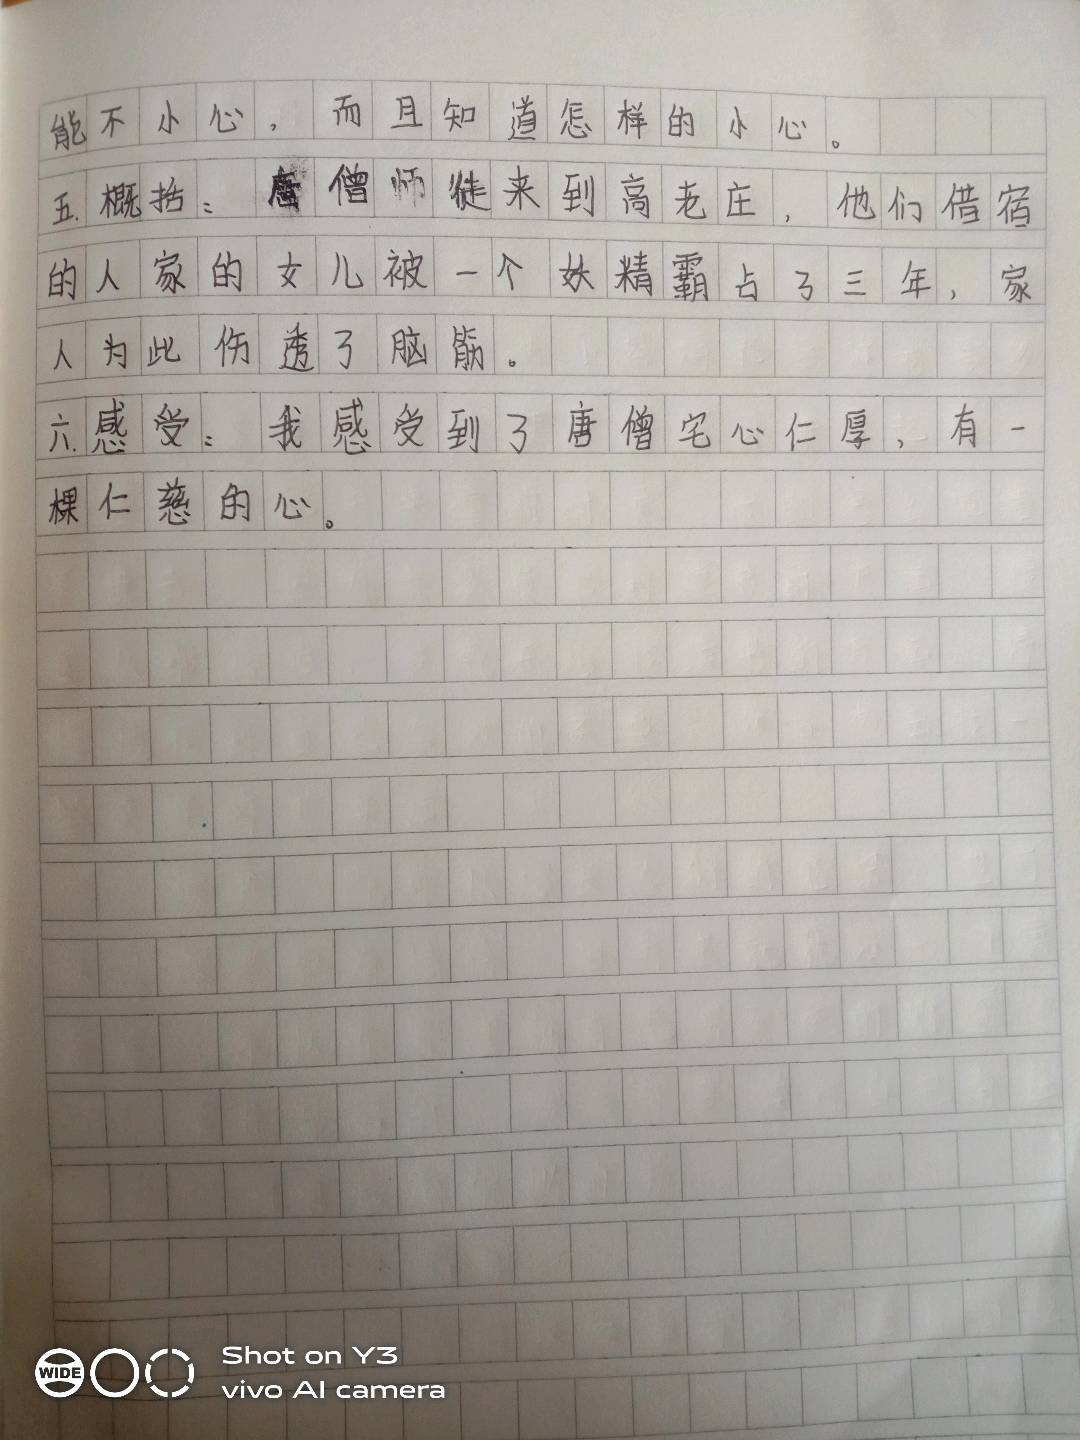 能不小心，而且知道怎样的小心。
五.概括：唐僧师徒来到高老庄，他们借宿
的人家的女儿被一个妖精霸占了三年，家
人为此伤透了脑筋。
六.感受：我感受到了唐僧宅心仁厚，有一
棵仁慈的心。
WIDE
Shot on Y3
vivo AI camera